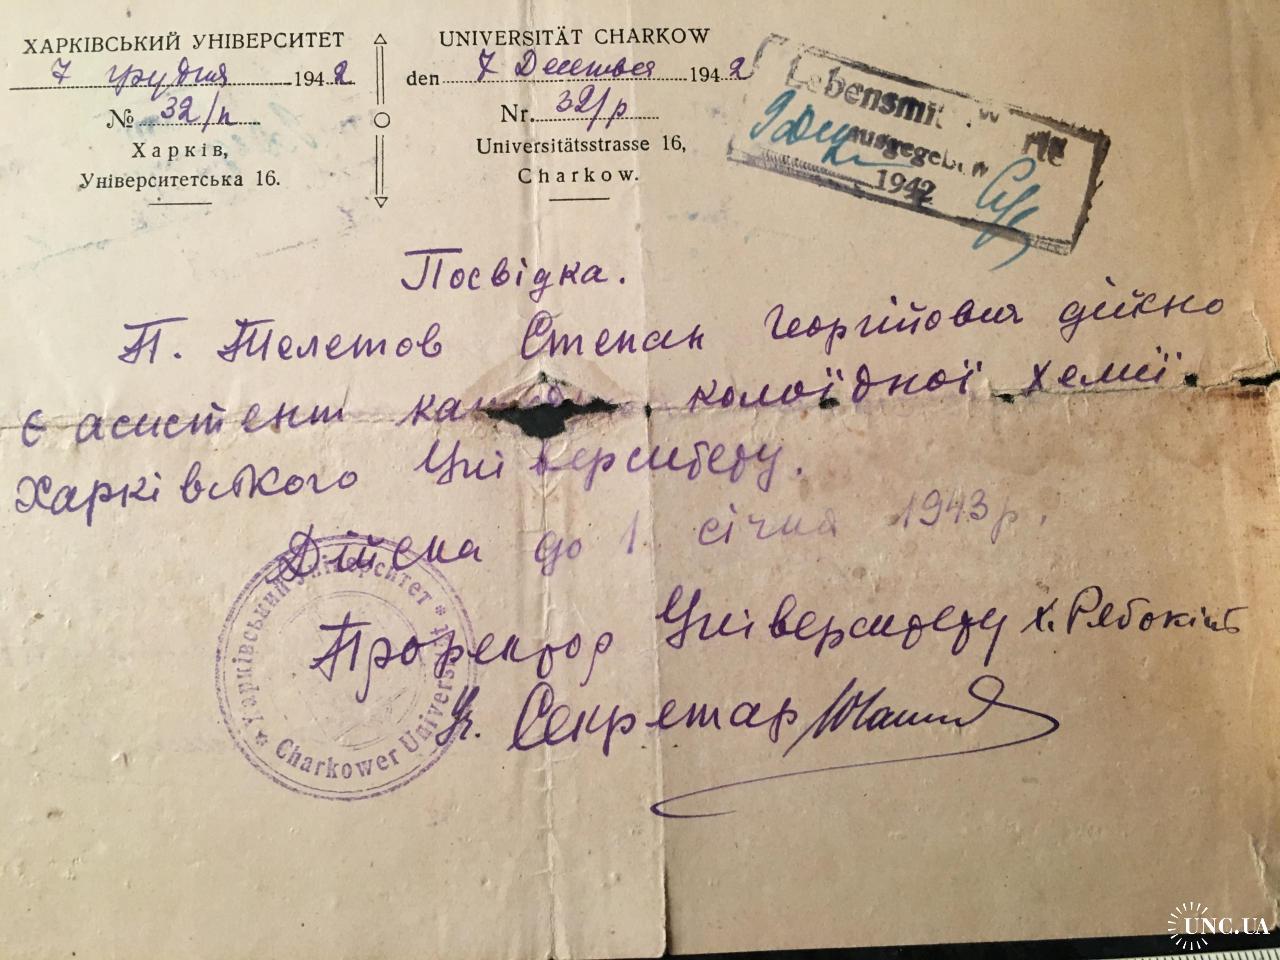 ХАРКІВСЬКИЙ УНІВЕРСИТЕТ
7 грудня 1942
№ 32/п
Харків,
Університетська 16.
UNIVERSITÄT CHARKOW
den 7 Dесетвеr 1942
Nr. 32/p
Universitätsstrasse 16,
Charkow.
ausgegeben
1942
Посвідка.
Т. Телетов Степан Георгійович дійсно
є асистент колоїдної хемії
Харківського Університету.
Дійсна до 1 січня 1943 р.
Проректор Університету
Уч. Секретар
Харківський Університет * Charkower Universität *
UNC.UA